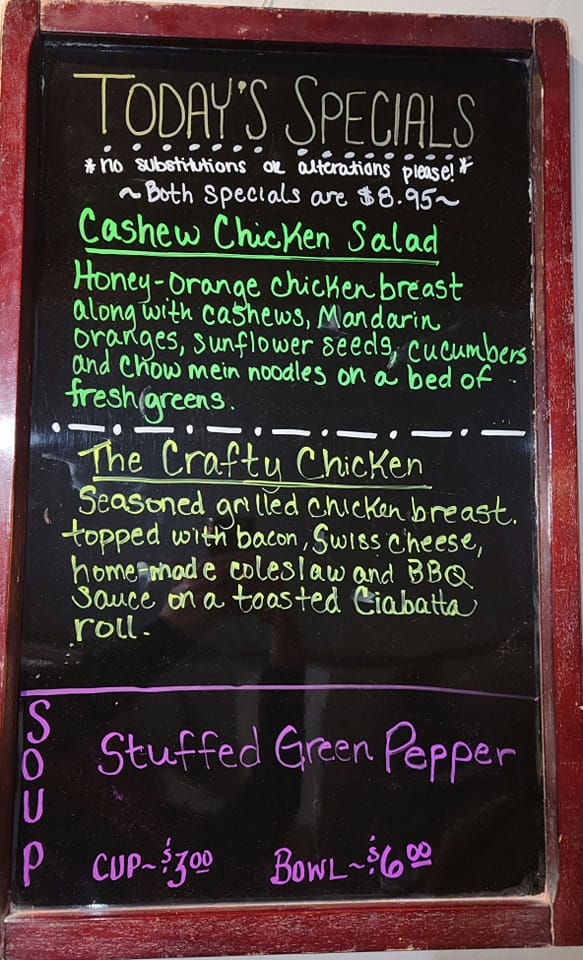 TODAY'S SPECIALS
*no substitutions or alterations please!*
~Both specials are $8.95~
Cashew Chicken Salad
Honey-orange chicken breast
along with cashews, Mandarin
oranges, sunflower seeds, cucumbers
and chow mein noodles on a bed of
fresh greens.
The Crafty Chicken
Seasoned grilled chicken breast.
topped with bacon, Swiss cheese,
home-made coleslaw and BBQ
sauce on a toasted Ciabatta
roll.
SOUP
Stuffed Green Pepper
CUP~$3.00 BOWL~$6.00